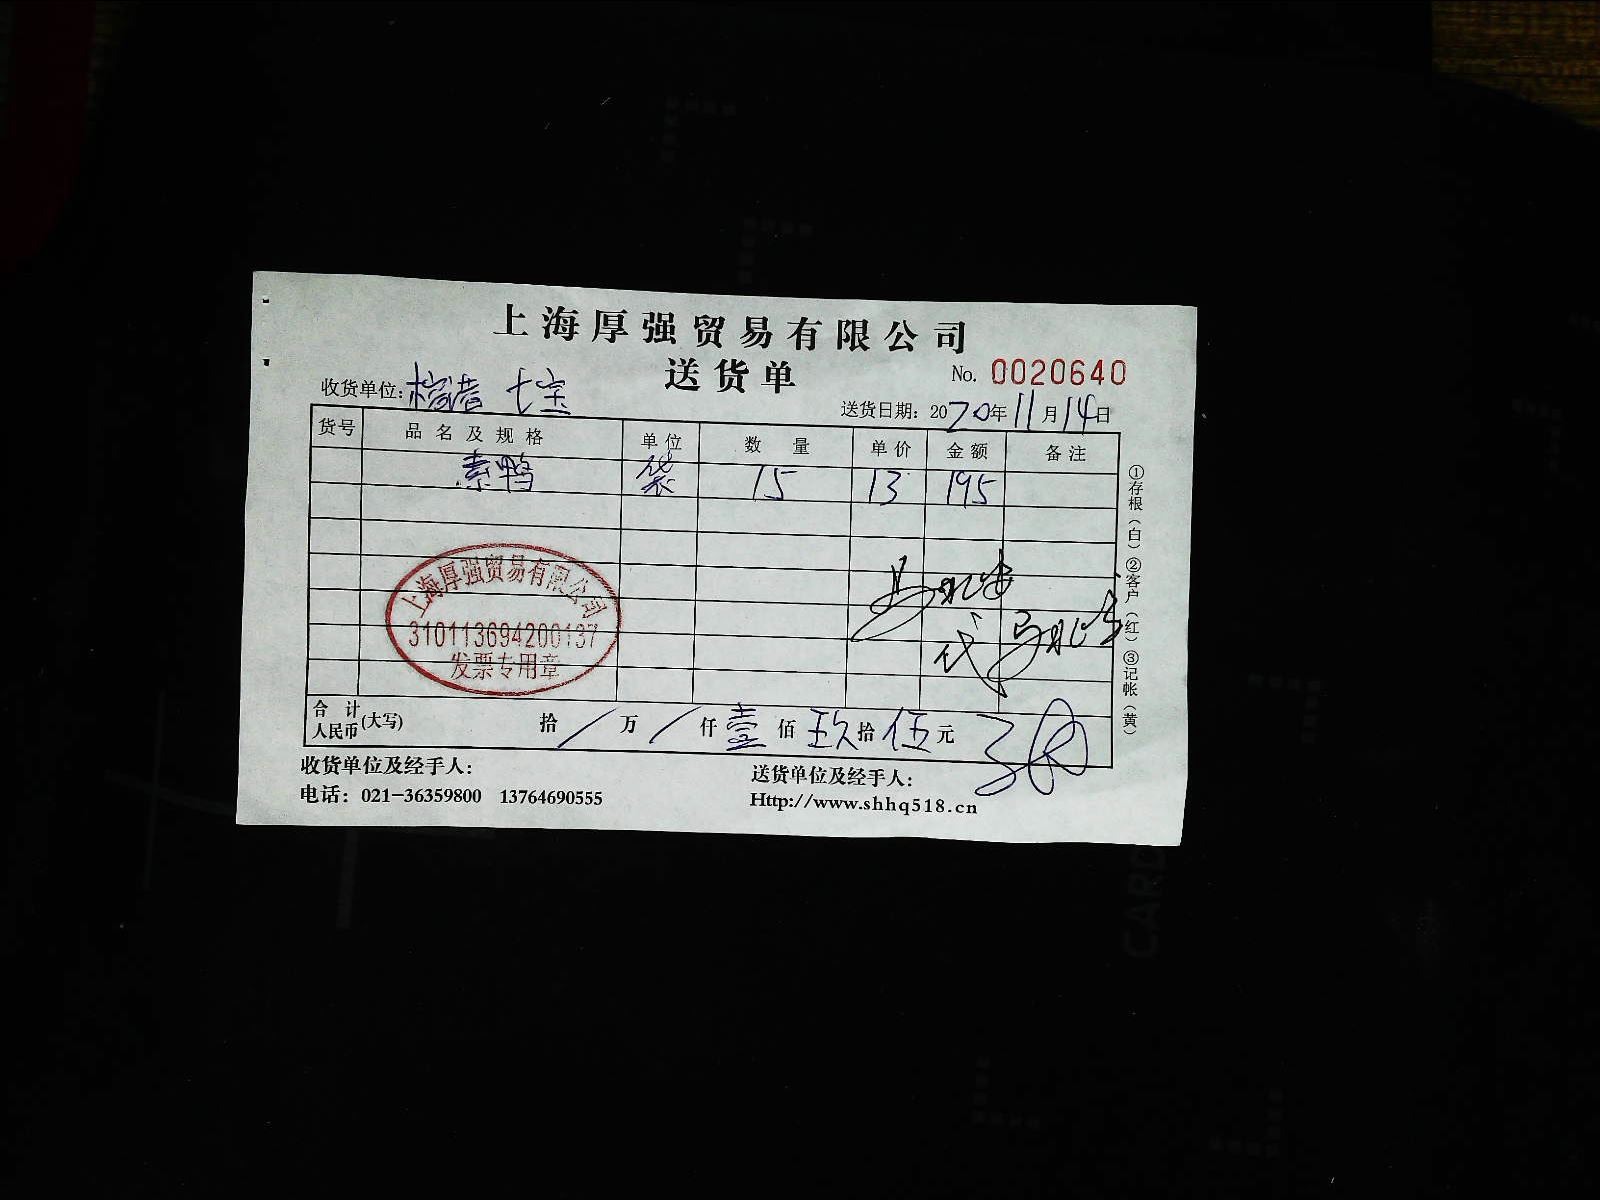 上海厚强贸易有限公司
送货单
No. 0020640
收货单位: 七宝
送货日期: 2020年11月14日
货号 品名及规格 单位 数量 单价 金额 备注
素鸭 袋 15 13 195
上海厚强贸易有限公司
310113694200137
发票专用章
代
合计人民币(大写) 拾/万/仟壹佰玖拾伍元
收货单位及经手人:
送货单位及经手人:
电话: 021-36359800 13764690555
Http://www.shhq518.cn
①存根(白) ②客户(红) ③记帐(黄)